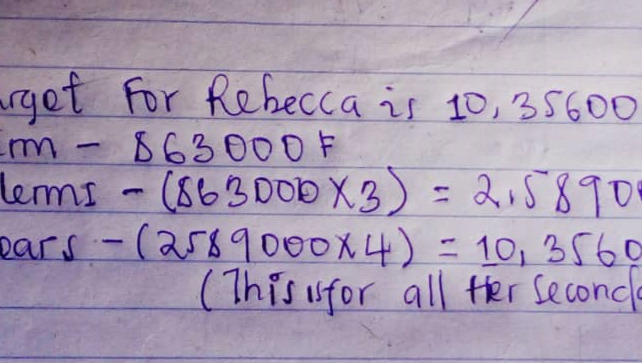 arget For Rebecca is 10,35600
rm - 863000F
terms - (863000X3) = 2,58900
ears - (2589000X4) = 10,3560
(This is for all Her Seconda